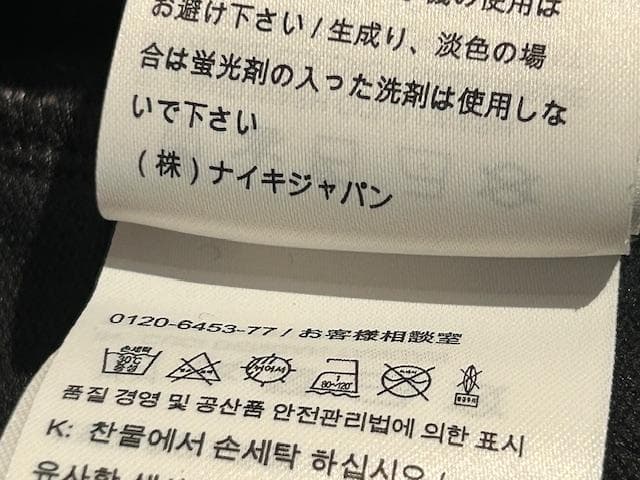 の使用は
お避け下さい / 生成り、淡色の場
合は蛍光剤の入った洗剤は使用しな
いで下さい
(株) ナイキジャパン
0120-6453-77 / お客様相談室
손세탁
80~120
품질 경영 및 공산품 안전관리법에 의한 표시
K: 찬물에서 손세탁 하십시오 /